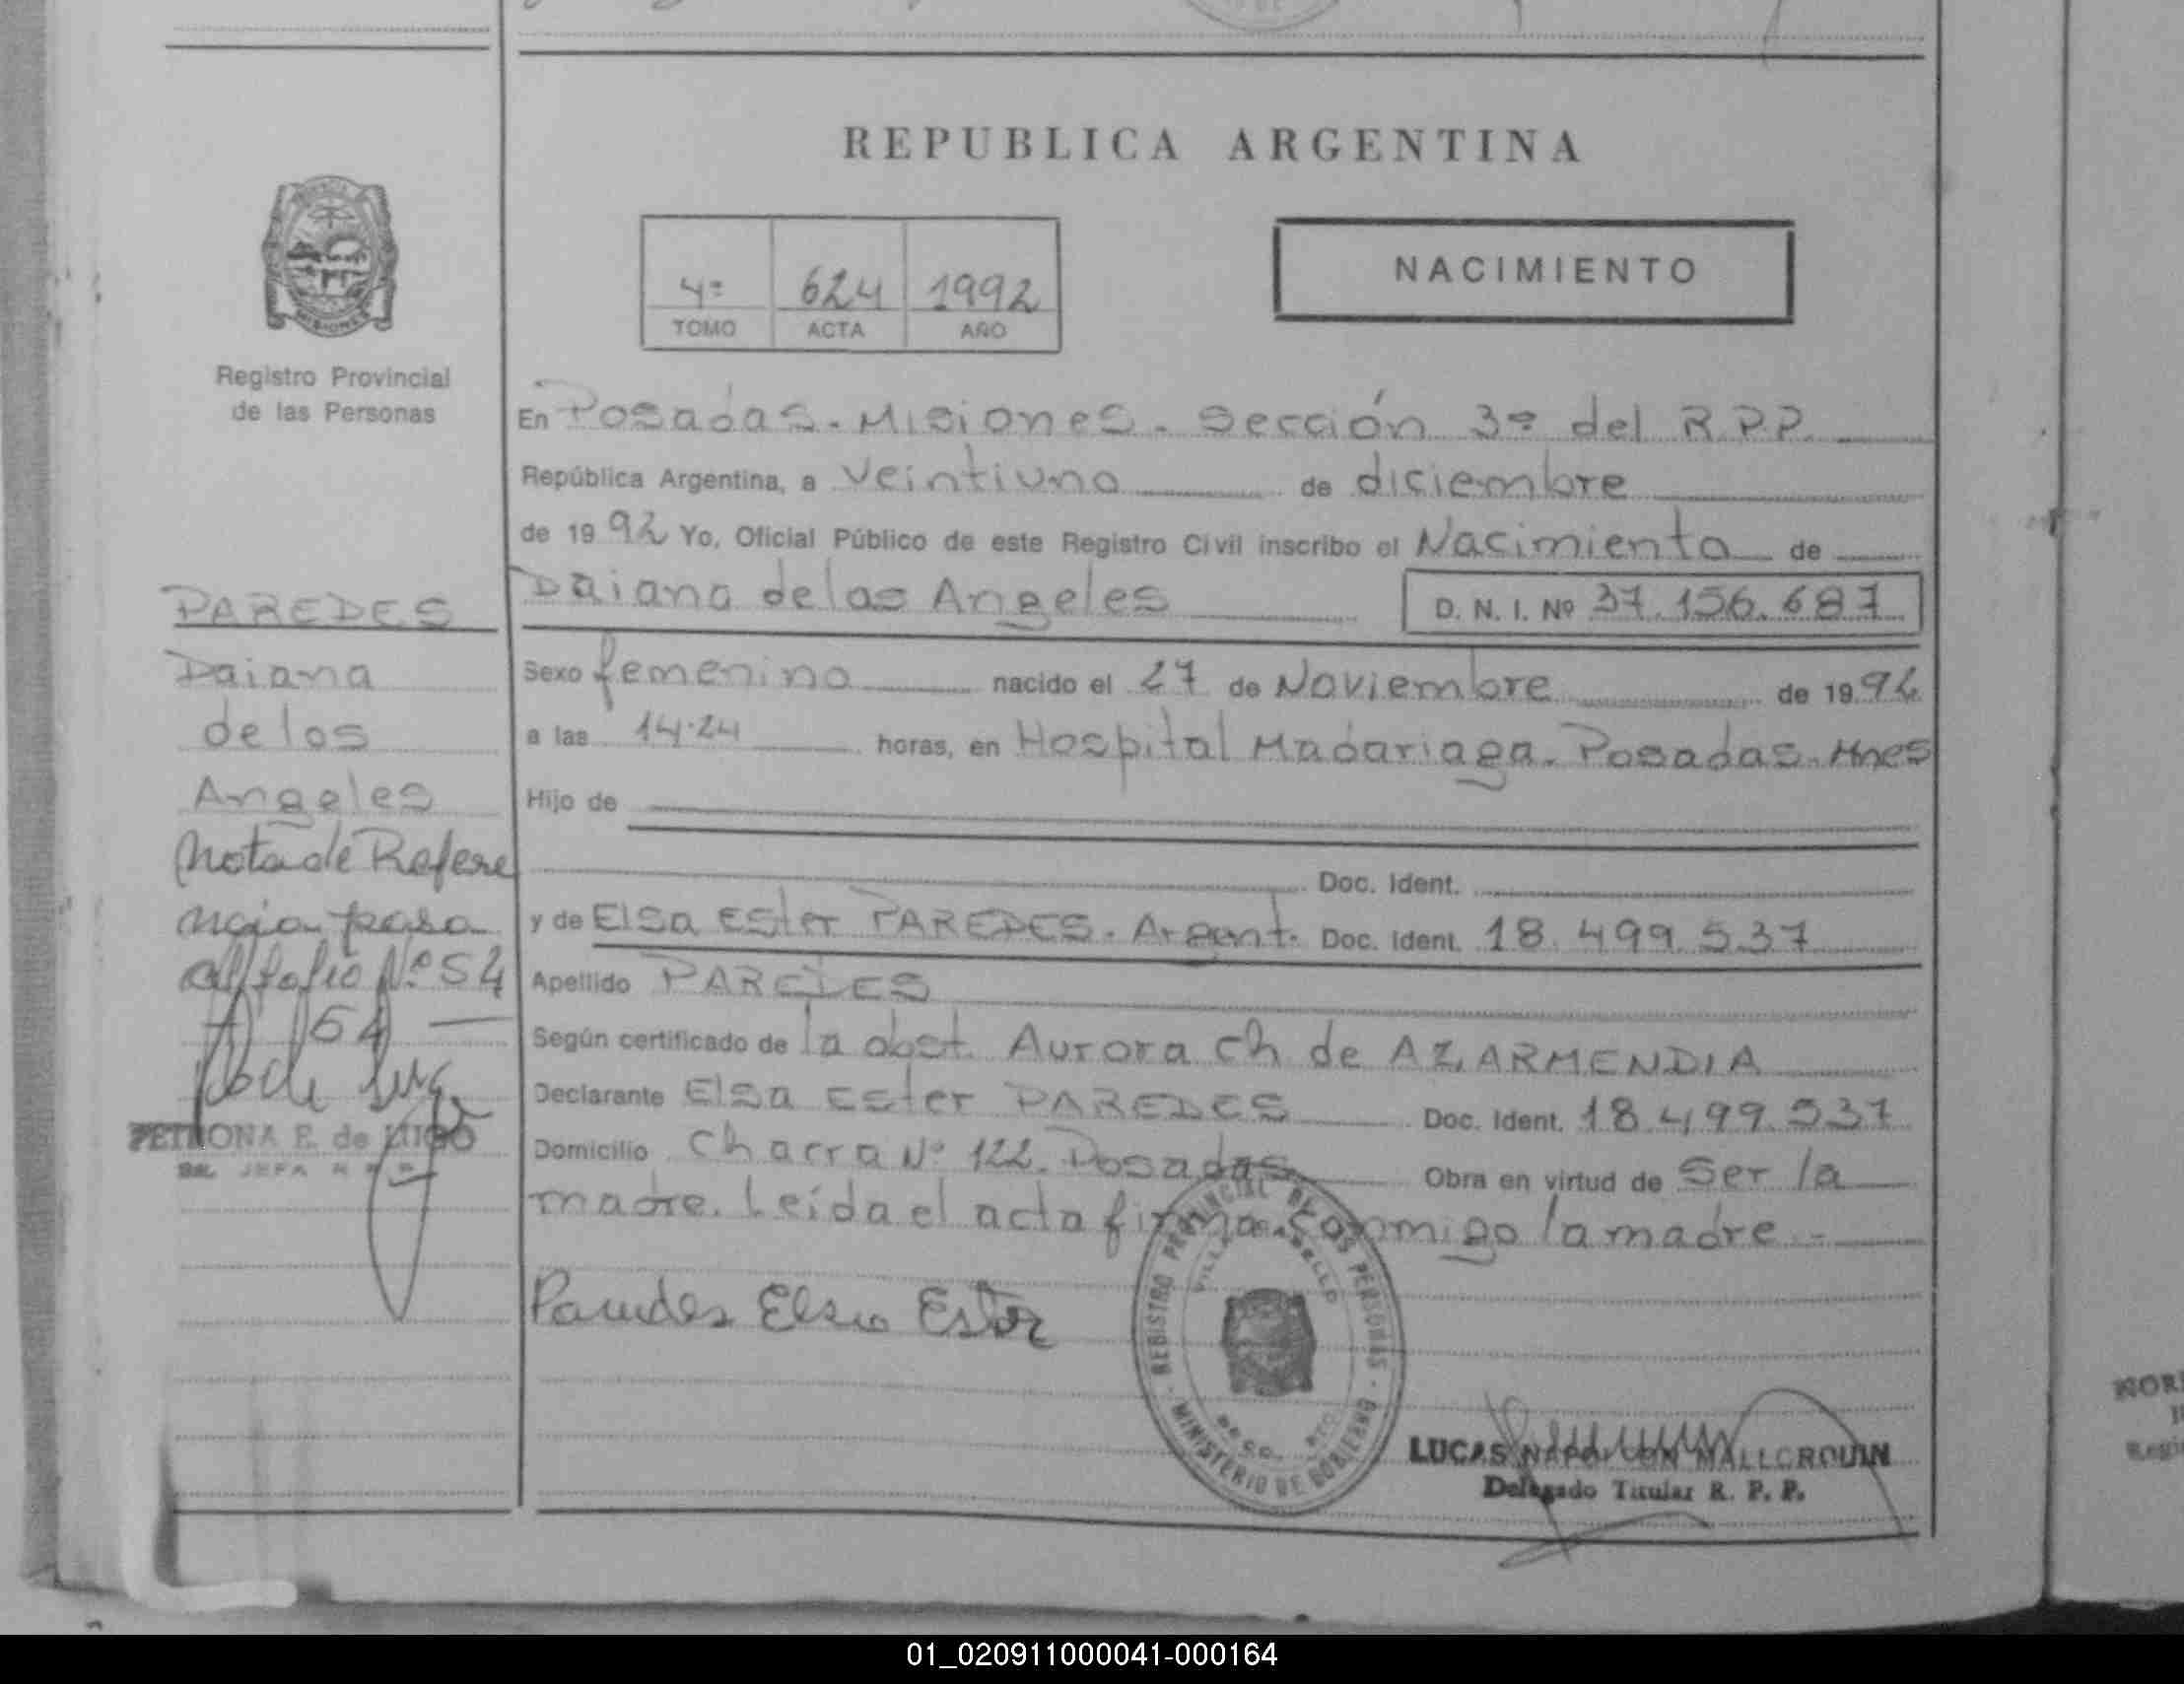 REPUBLICA ARGENTINA
4º 624 1992
TOMO ACTA AÑO
NACIMIENTO
MISIONES
Registro Provincial
de las Personas
En Posadas - Misiones - Sección 3º del R.P.P.
República Argentina, a veintiuno de diciembre
de 1992 Yo, Oficial Público de este Registro Civil inscribo el Nacimiento de
Daiana de los Angeles D. N. I. Nº 37.156.687
Sexo femenino nacido el 27 de Noviembre de 1992
a las 14.24 horas, en Hospital Madariaga. Posadas-Mnes
Hijo de
Doc. Ident.
y de Elsa Ester PAREDES. Argent. Doc. Ident. 18.499.537
Apellido PAREDES
Según certificado de la obst. Aurora Ch de AZARMENDIA
Declarante Elsa Ester PAREDES Doc. Ident. 18.499.537
Domicilio Chacra Nº 122. Posadas Obra en virtud de Ser la
madre. Leída el acta firma conmigo la madre.-
Paredes Elsa Ester
REGISTRO PROVINCIAL DE LAS PERSONAS - MINISTERIO DE GOBIERNO
LUCAS NAPOLEON MALLORQUIN
Delegado Titular R. P. P.
PAREDES
Daiana
de los
Angeles
Nota de Refere
ncia pasa
al folio Nº 54
PETRONA E. de LUGO
JEFA
01_020911000041-000164